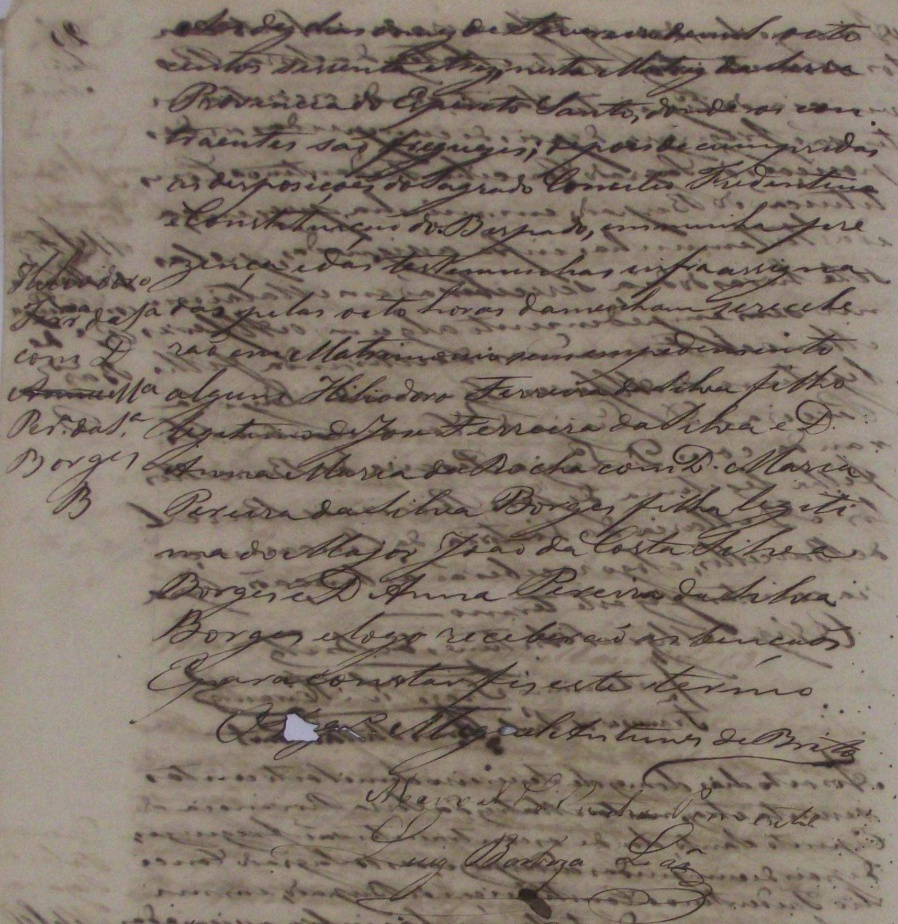 dias do mez de Fevereiro de mil oito
centos sessenta e tres, nesta Matriz da Serra
Provincia do Espirito Santo, donde os con
traentes são freguezes; depois de cumpridas
as desposições do Sagrado Concilio Tredentino
e Constituição do Bispado, em minha pre
zença e das testemunhas infra assigna
das pelas oito horas da menham se recebe
rão em Matrimonio sem empedimento
algum Heliodoro Ferreira da Silva filho
legitimo de Jose Ferreira da Silva e D.
Anna Maria da Rocha com D. Maria
Pereira da Silva Borges filha legiti
ma do Major João da Costa Silva
Borges e D Anna Pereira da Silva
Borges e logo receberão as bençãos
E para constar fis este termo
Antunes de Britto
Luiz Barboza
Heliodoro
Fer. da Sa
com D.
Per. da Sa.
Borges
B